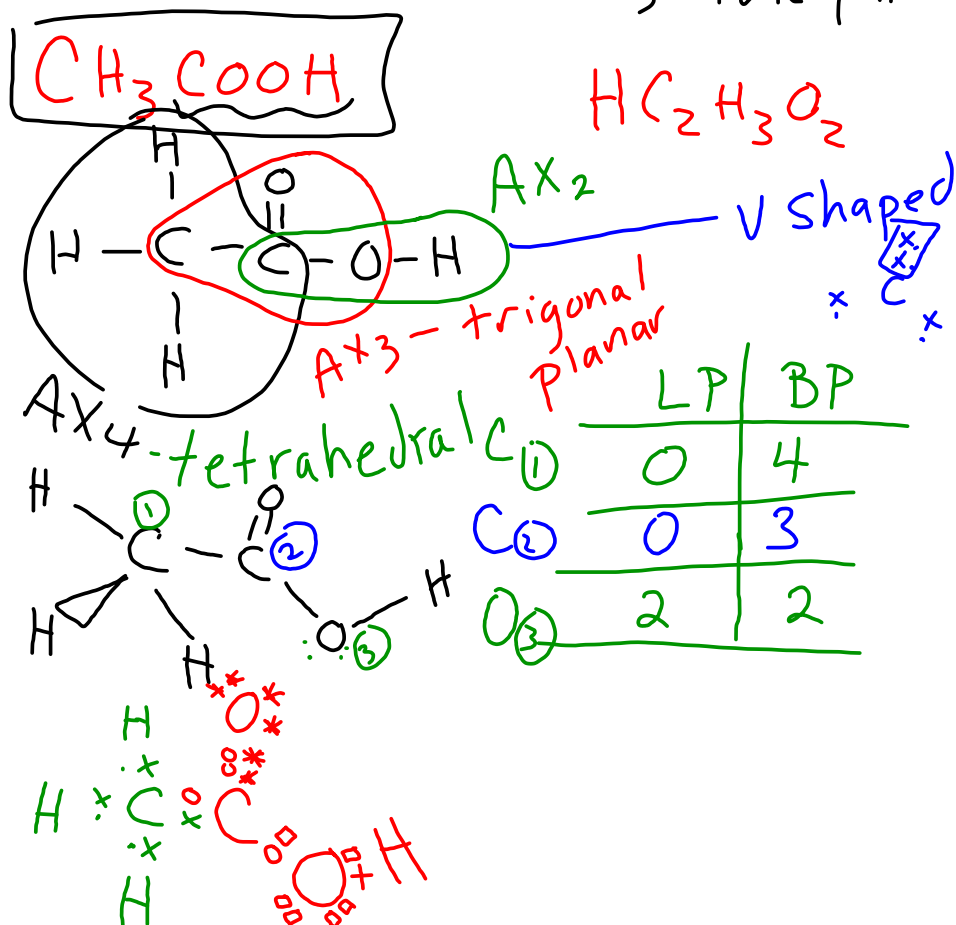 CH3COOH
HC2H3O2
H
O
H — C — C — O — H
H
AX2
V shaped
C
AX3 - trigonal
planar
AX4 - tetrahedral
LP BP
C① 0 4
C② 0 3
O③ 2 2
H ① O
C — C ②
H H O ③ H
H O
H C C
H O H